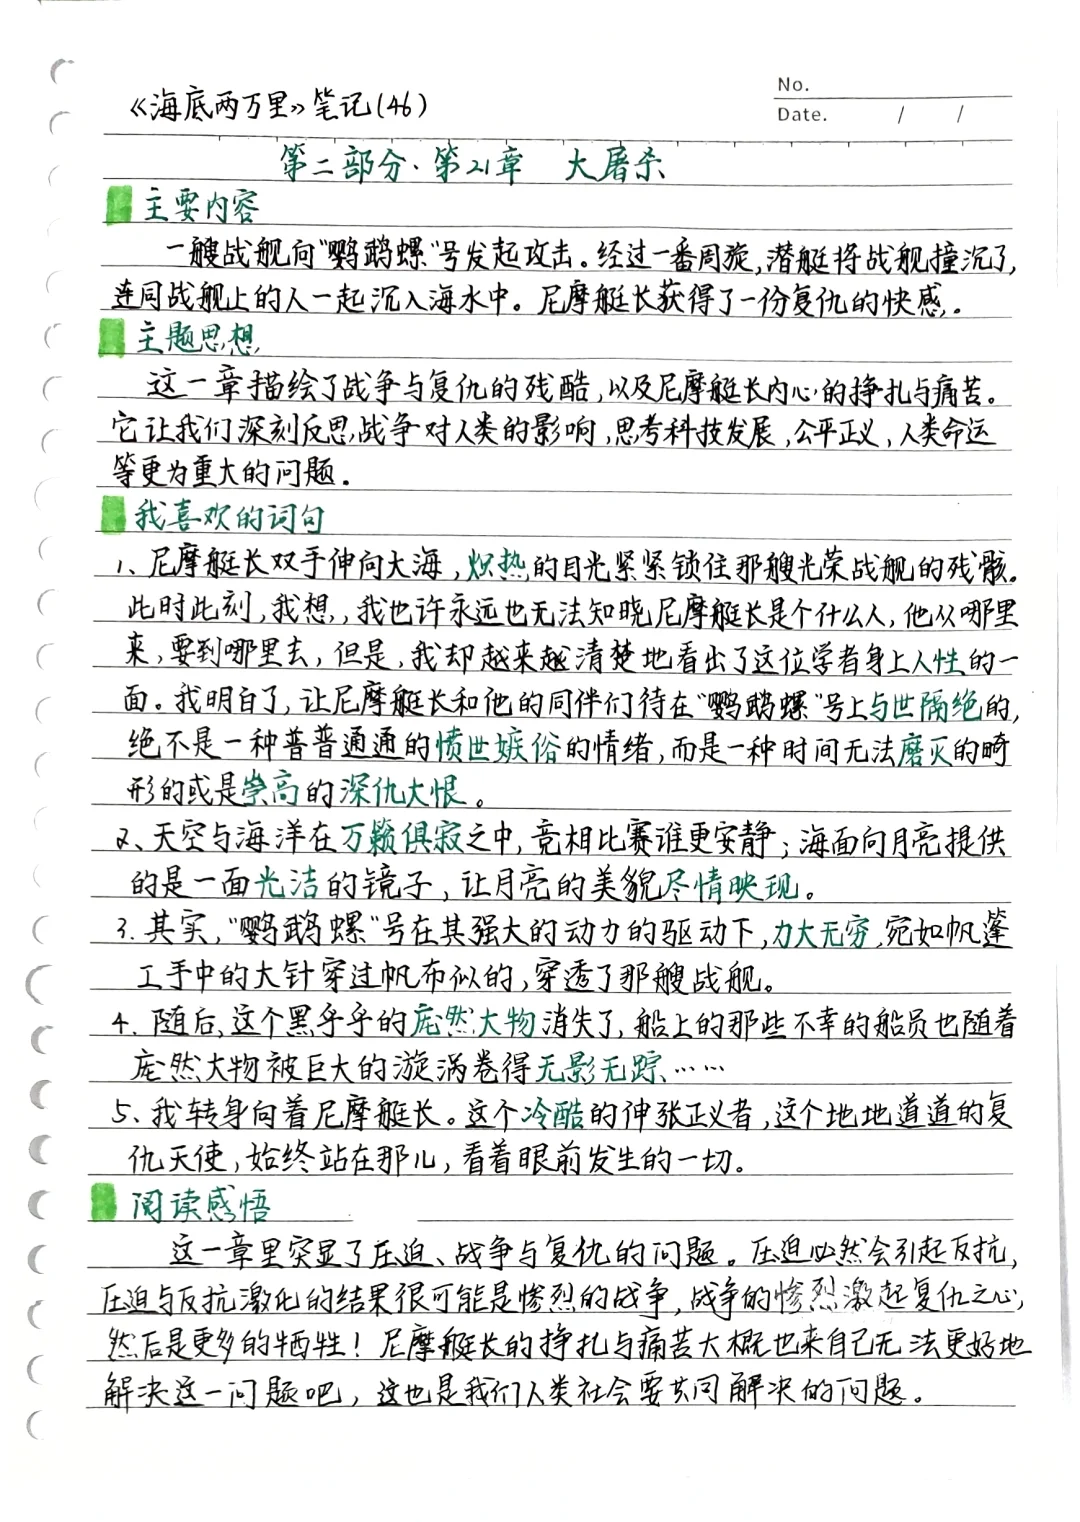 No.
《海底两万里》笔记(46)
Date. / /
第二部分·第21章 大屠杀
主要内容
一艘战舰向"鹦鹉螺"号发起攻击。经过一番周旋,潜艇将战舰撞沉了,
连同战舰上的人一起沉入海水中。尼摩艇长获得了一份复仇的快感。
主题思想
这一章描绘了战争与复仇的残酷,以及尼摩艇长内心的挣扎与痛苦。
它让我们深刻反思战争对人类的影响,思考科技发展,公平正义,人类命运
等更为重大的问题。
我喜欢的词句
1、尼摩艇长双手伸向大海,炽热的目光紧紧锁住那艘光荣战舰的残骸。
此时此刻,我想,我也许永远也无法知晓尼摩艇长是个什么人,他从哪里
来,要到哪里去,但是,我却越来越清楚地看出了这位学者身上人性的一
面。我明白了,让尼摩艇长和他的同伴们待在"鹦鹉螺"号上与世隔绝的,
绝不是一种普普通通的愤世嫉俗的情绪,而是一种时间无法磨灭的畸
形的或是崇高的深仇大恨。
2、天空与海洋在万籁俱寂之中,竞相比赛谁更安静;海面向月亮提供
的是一面光洁的镜子,让月亮的美貌尽情映现。
3.其实,"鹦鹉螺"号在其强大的动力的驱动下,力大无穷,宛如帆篷
工手中的大针穿过帆布似的,穿透了那艘战舰。
4.随后,这个黑乎乎的庞然大物消失了,船上的那些不幸的船员也随着
庞然大物被巨大的漩涡卷得无影无踪……
5、我转身向着尼摩艇长。这个冷酷的伸张正义者,这个地地道道的复
仇天使,始终站在那儿,看着眼前发生的一切。
阅读感悟
这一章里突显了压迫、战争与复仇的问题。压迫必然会引起反抗,
压迫与反抗激化的结果很可能是惨烈的战争,战争的惨烈激起复仇之心,
然后是更多的牺牲!尼摩艇长的挣扎与痛苦大概也来自己无法更好地
解决这一问题吧,这也是我们人类社会要共同解决的问题。